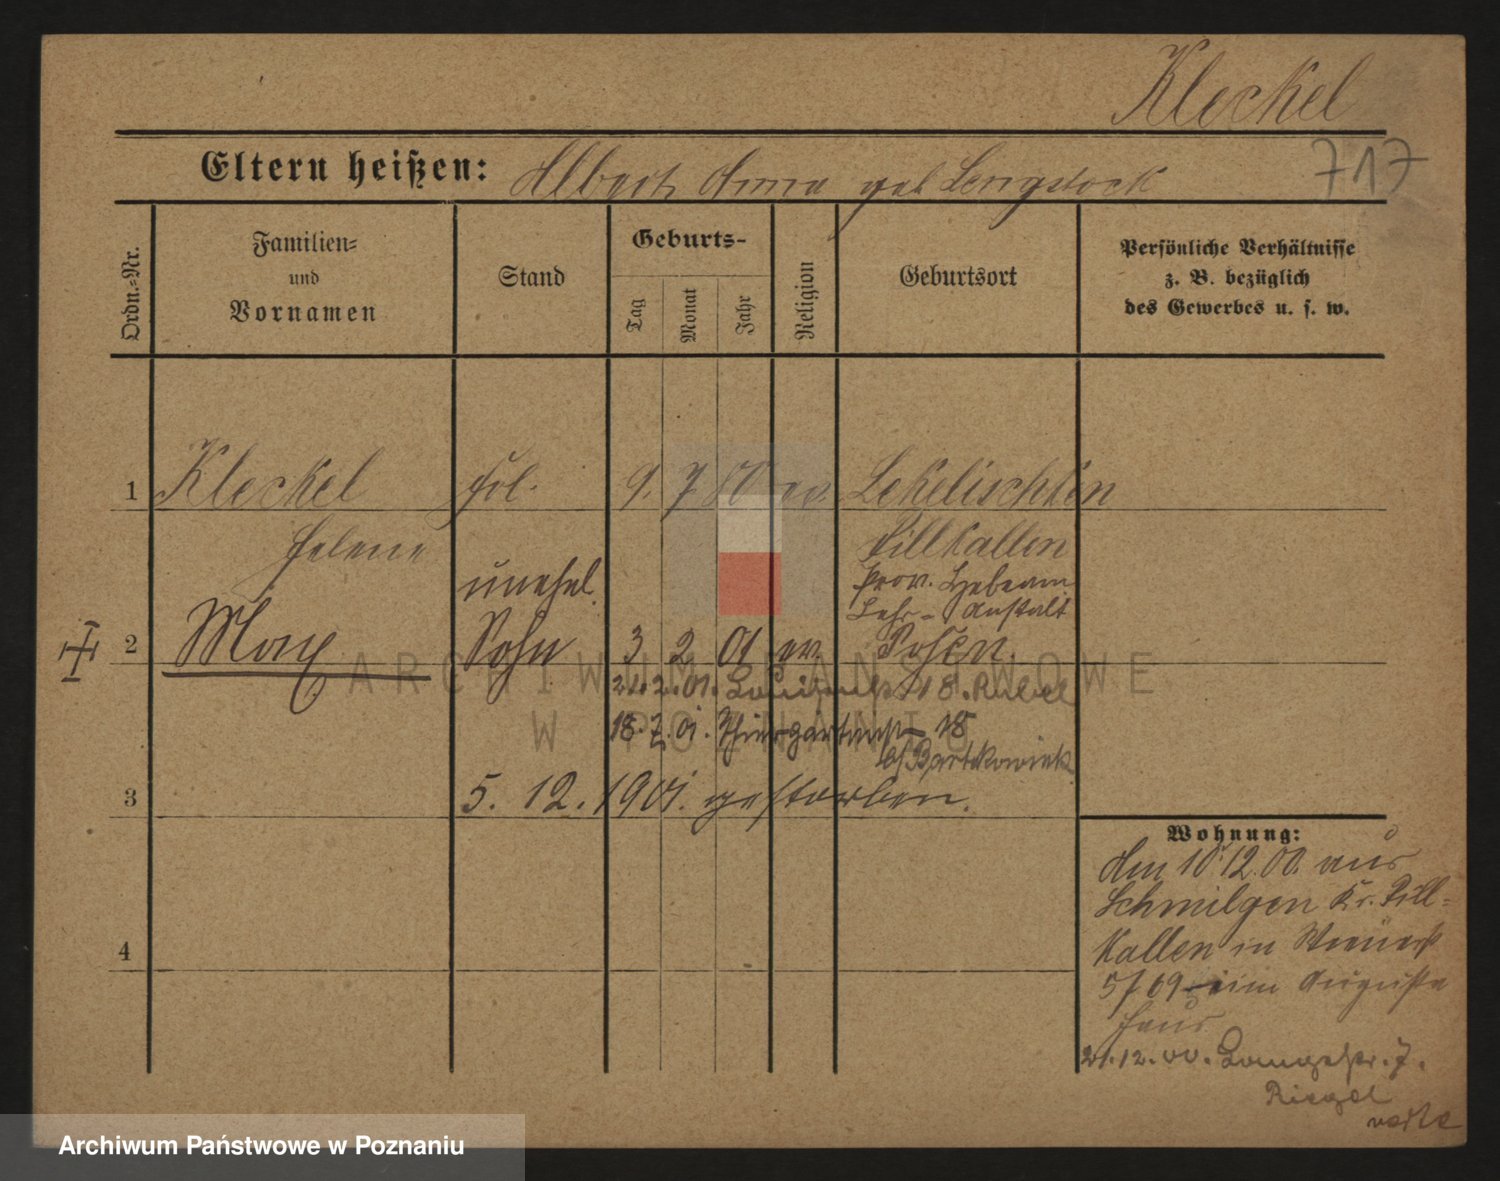 Kleckel
717
Eltern heißen: Albert, Anna geb Lengstock
Ordn.-Nr.
Familien-
und
Vornamen
Stand
Geburts-
Tag
Monat
Jahr
Religion
Geburtsort
Persönliche Verhältnisse
z. B. bezüglich
des Gewerbes u. s. w.
1 Kleckel frl. 9. 7. 80 ev. Lekelischken
Helene Pillkallen
unehel. Prov. Hebeam
Lehr-Anstalt
2 Max Sohn 3 2 01 ev. Posen.
21.2.01. 18.
18.7.01. Thiergartenstr 18
b/ Bartkowiak
3 5. 12. 1901. gestorben.
Wohnung:
Am 10.12.00. aus
Schmilgen Kr. Pill-
4 kallen in
5/69 im Augusta
Haus
21.12.00. Langestr. 7.
Riegel
ARCHIWUM PAŃSTWOWE
W POZNANIU
Archiwum Państwowe w Poznaniu